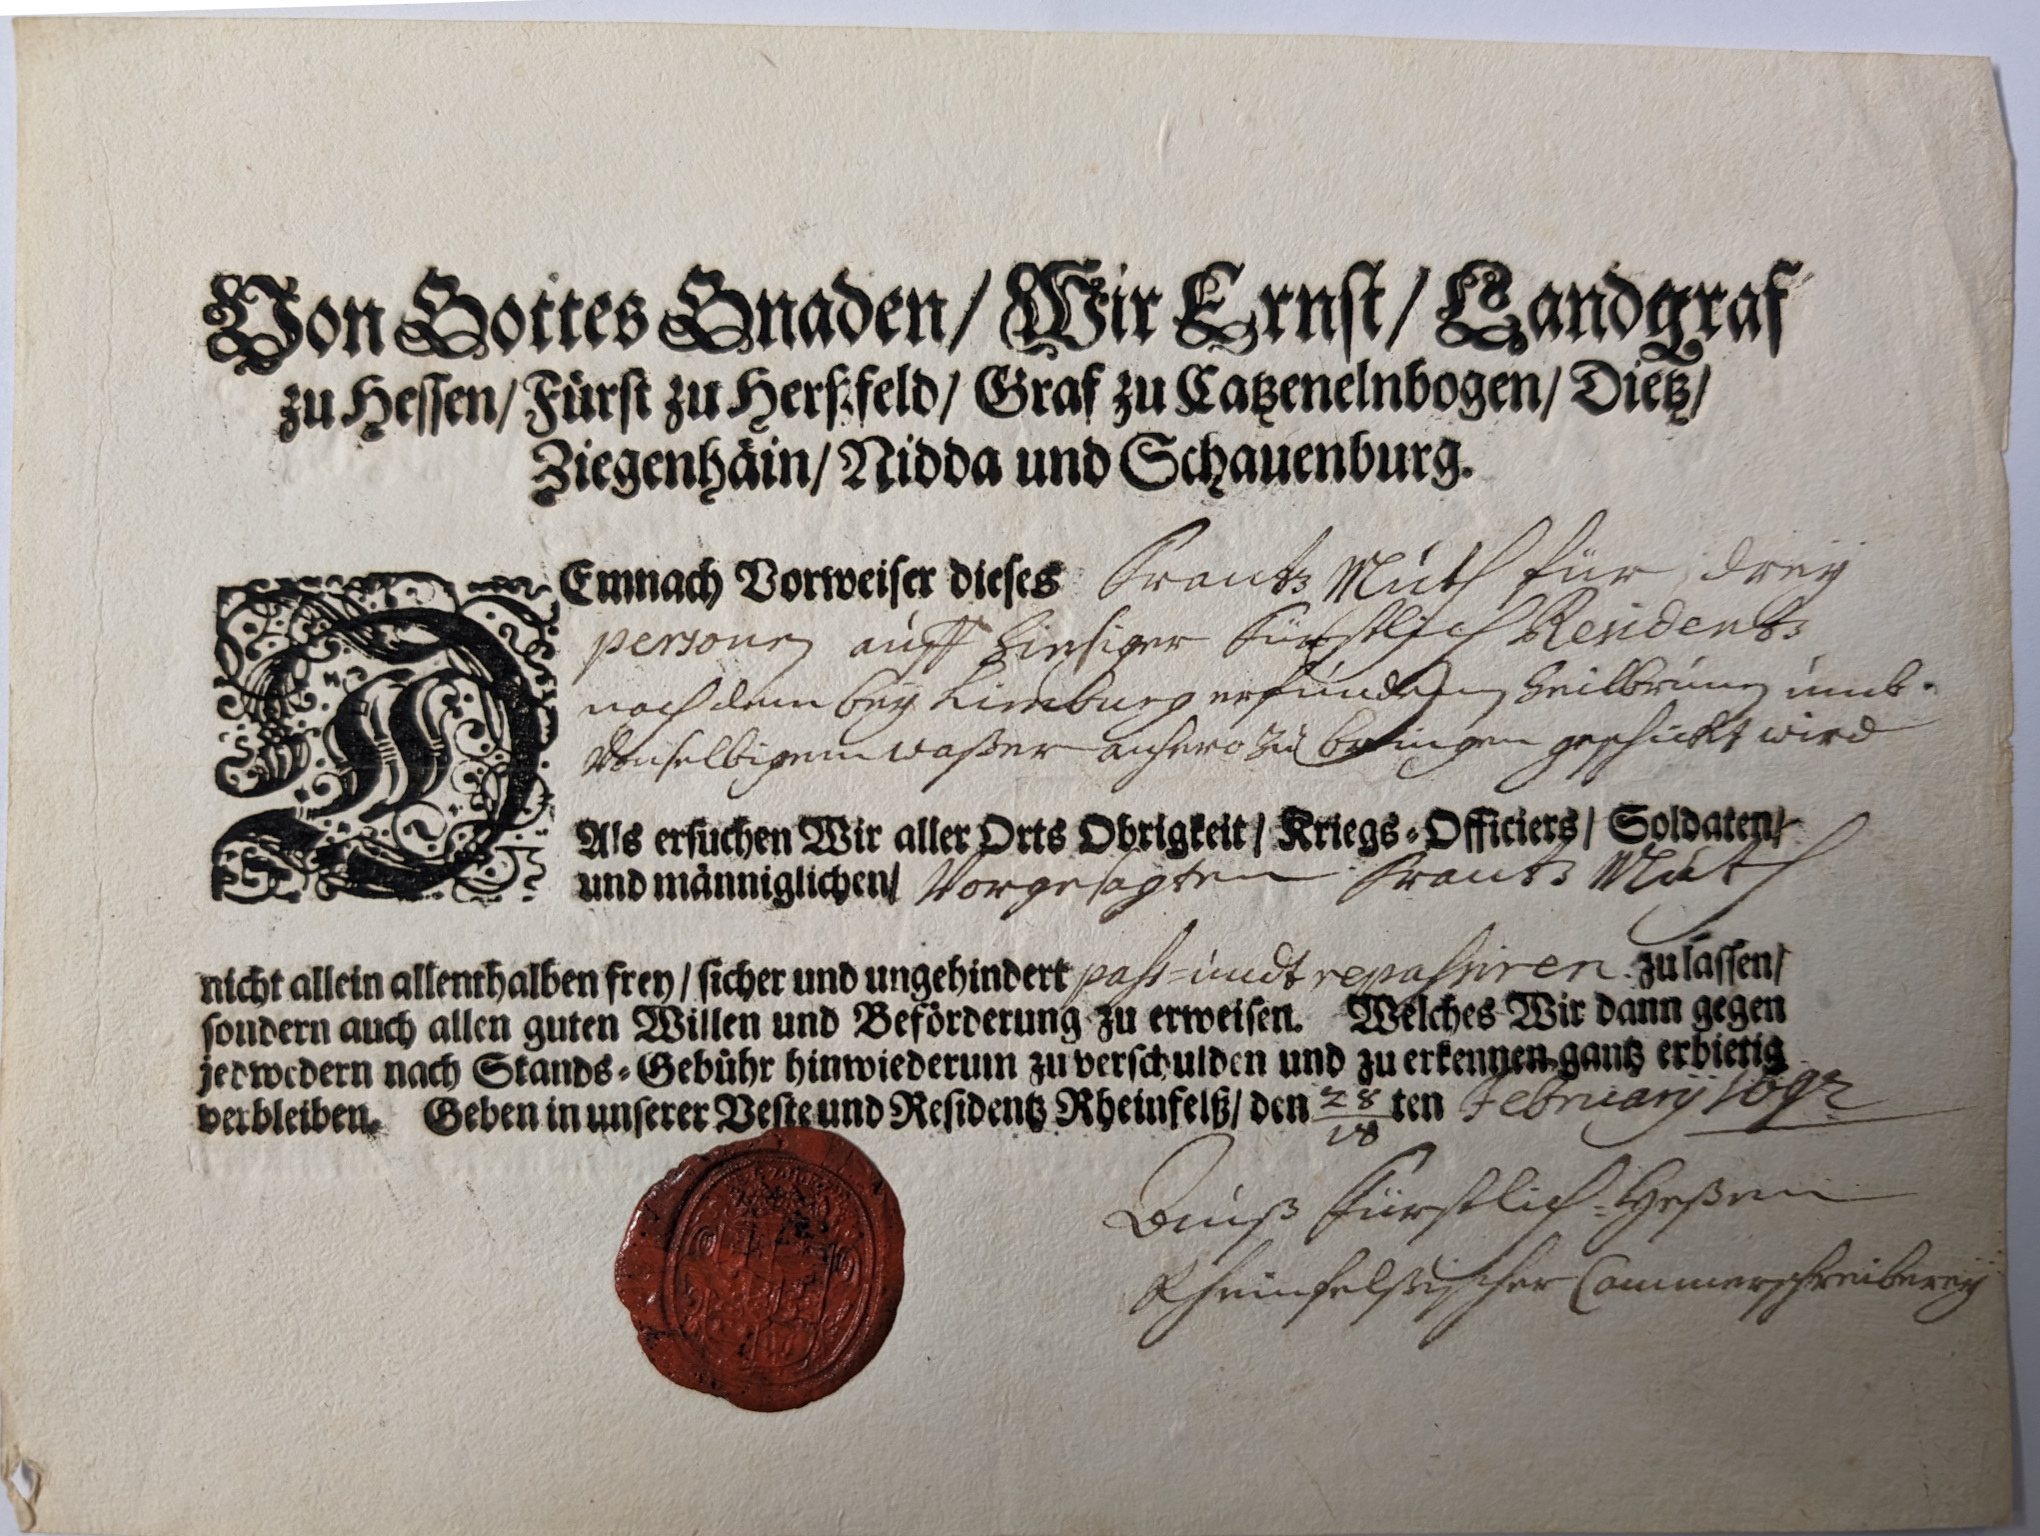 Von Gottes Gnaden/ Wir Ernst/ Landgraf
zu Hessen/ Fürst zu Herßfeld/ Graf zu Catzenelnbogen/ Dietz/
Ziegenhäin/ Nidda und Schauenburg.
DEmnach Vorweiser dieses Frantz Muth für drey
personen auff hiesiger fürstlich Residentz
nach dem bey Limburg erfundenen heilbrunnen umb
desselbigem waßer anhero zu bringen geschickt wird
Als ersuchen Wir aller Orts Obrigkeit/ Kriegs-Officiers/ Soldaten/
und männiglichen/ Vorgesagten Frantz Muth
nicht allein allenthalben frey/ sicher und ungehindert pass- undt repassiren zu lassen/
sondern auch allen guten Willen und Beförderung zu erweisen. Welches Wir dann gegen
jedwedern nach Stands-Gebühr hinwiederum zu verschulden und zu erkennen gantz erbietig
verbleiben. Geben in unserer Veste und Residentz Rheinfelß/ den 28/18 ten February 1692
fürstlich-Heßen
Rheinfelßischer Cammerschreiberey